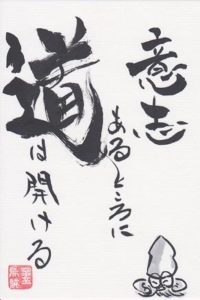 意志
あるところに
道
は開ける